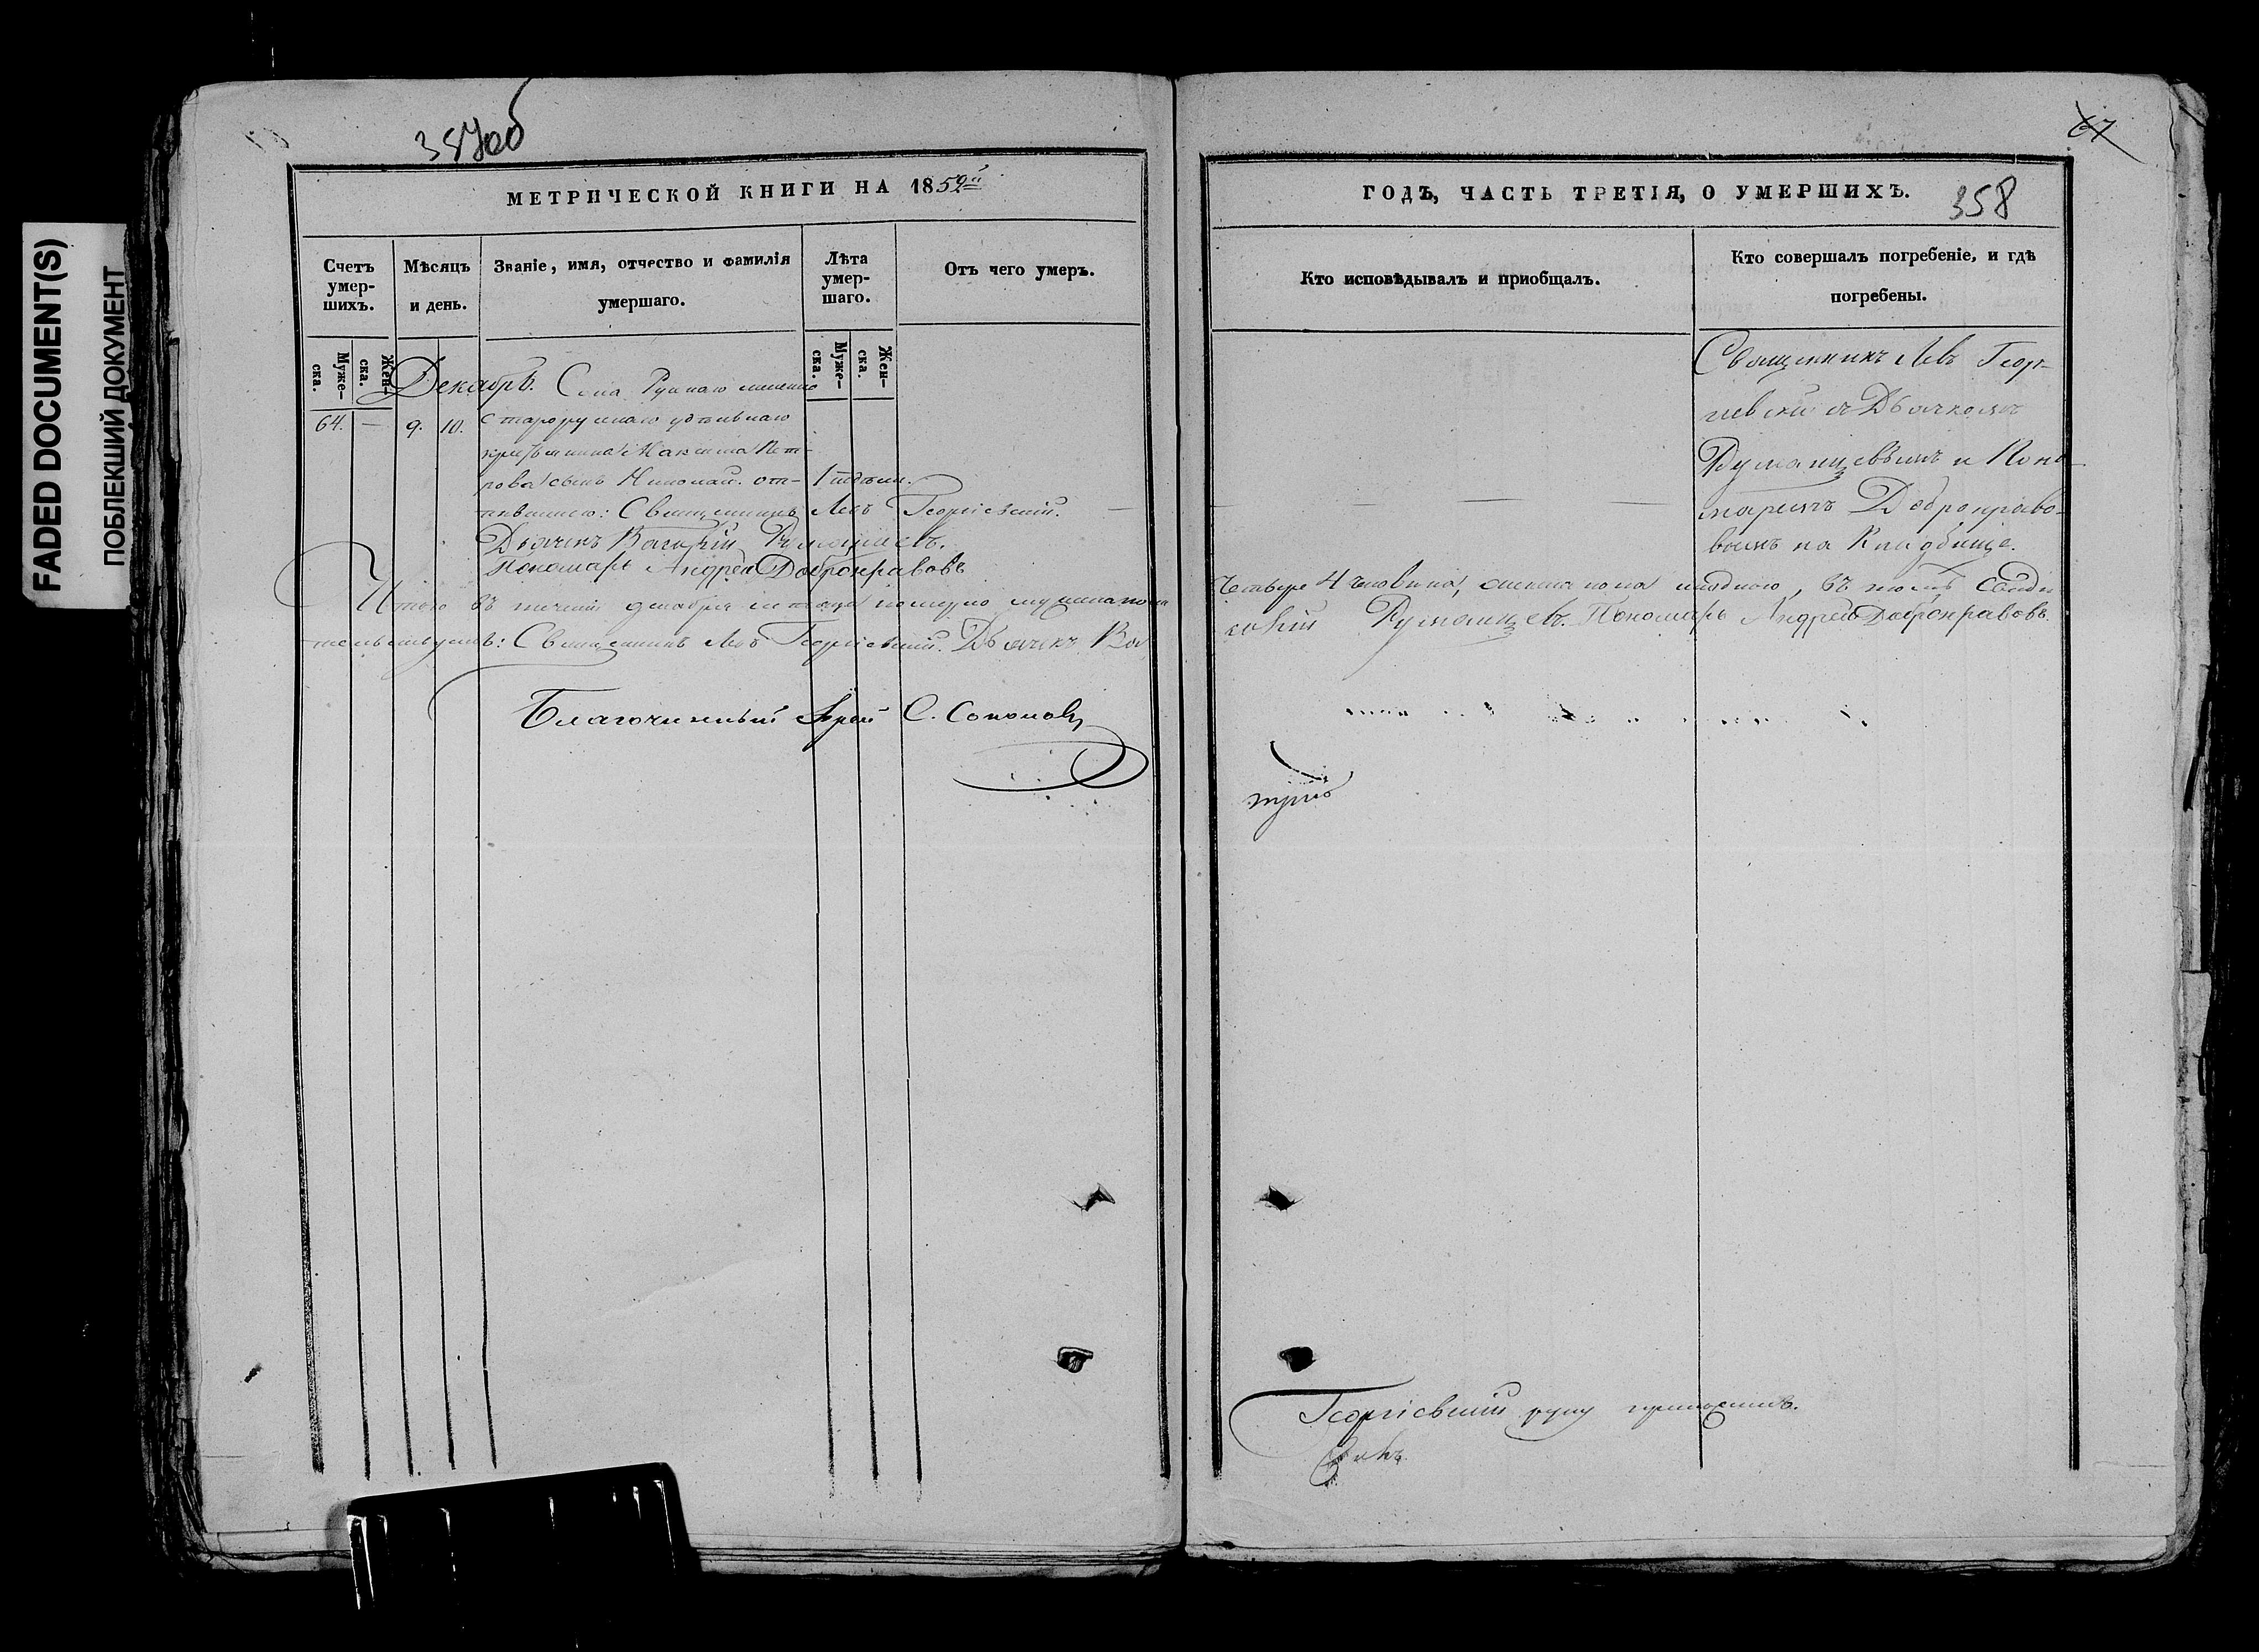 FADED DOCUMENT(S)
ПОБЛЕКШИЙ ДОКУМЕНТ
357об
МЕТРИЧЕСКОЙ КНИГИ НА 1852й
Счетъ умер-шихъ.
Мѣсяцъ и день.
Званіе, имя, отчество и фамилія умершаго.
Лѣта умер-шаго.
Отъ чего умеръ.
Муже-ска.
Жен-ска.
Муже-ска.
Жен-ска.
Декабрь. Села
64. — 9. 10. Старорускаго удѣльнаго
Максима Пет-
рова сынъ Николай. от- 1
Священникъ Левъ Георгіевскій. —
Дьячекъ Василій Румянцевъ.
Пономарь Андрей Добронравовъ
Итого въ теченіи декабря месяца померло мужеска пола
Священникъ Левъ Георгіевскій. Дьячекъ Ва
Благочинный Іерей С. Соколовъ
67
ГОДЪ, ЧАСТЬ ТРЕТІЯ, О УМЕРШИХЪ.
358
Кто исповѣдывалъ и приобщалъ.
Кто совершалъ погребеніе, и гдѣ погребены.
Священникъ Левъ Геор-
гіевскій съ Дьячкомъ
Румянцевымъ и Поно-
— — — — маремъ Доброправо-
вымъ на Кладбище.
четыре 4 человека, женска пола ни одного, въ томъ свиде
силій Румянцевъ. Пономарь Андрей Доброправовъ.
Георгіевскій руку приложилъ.